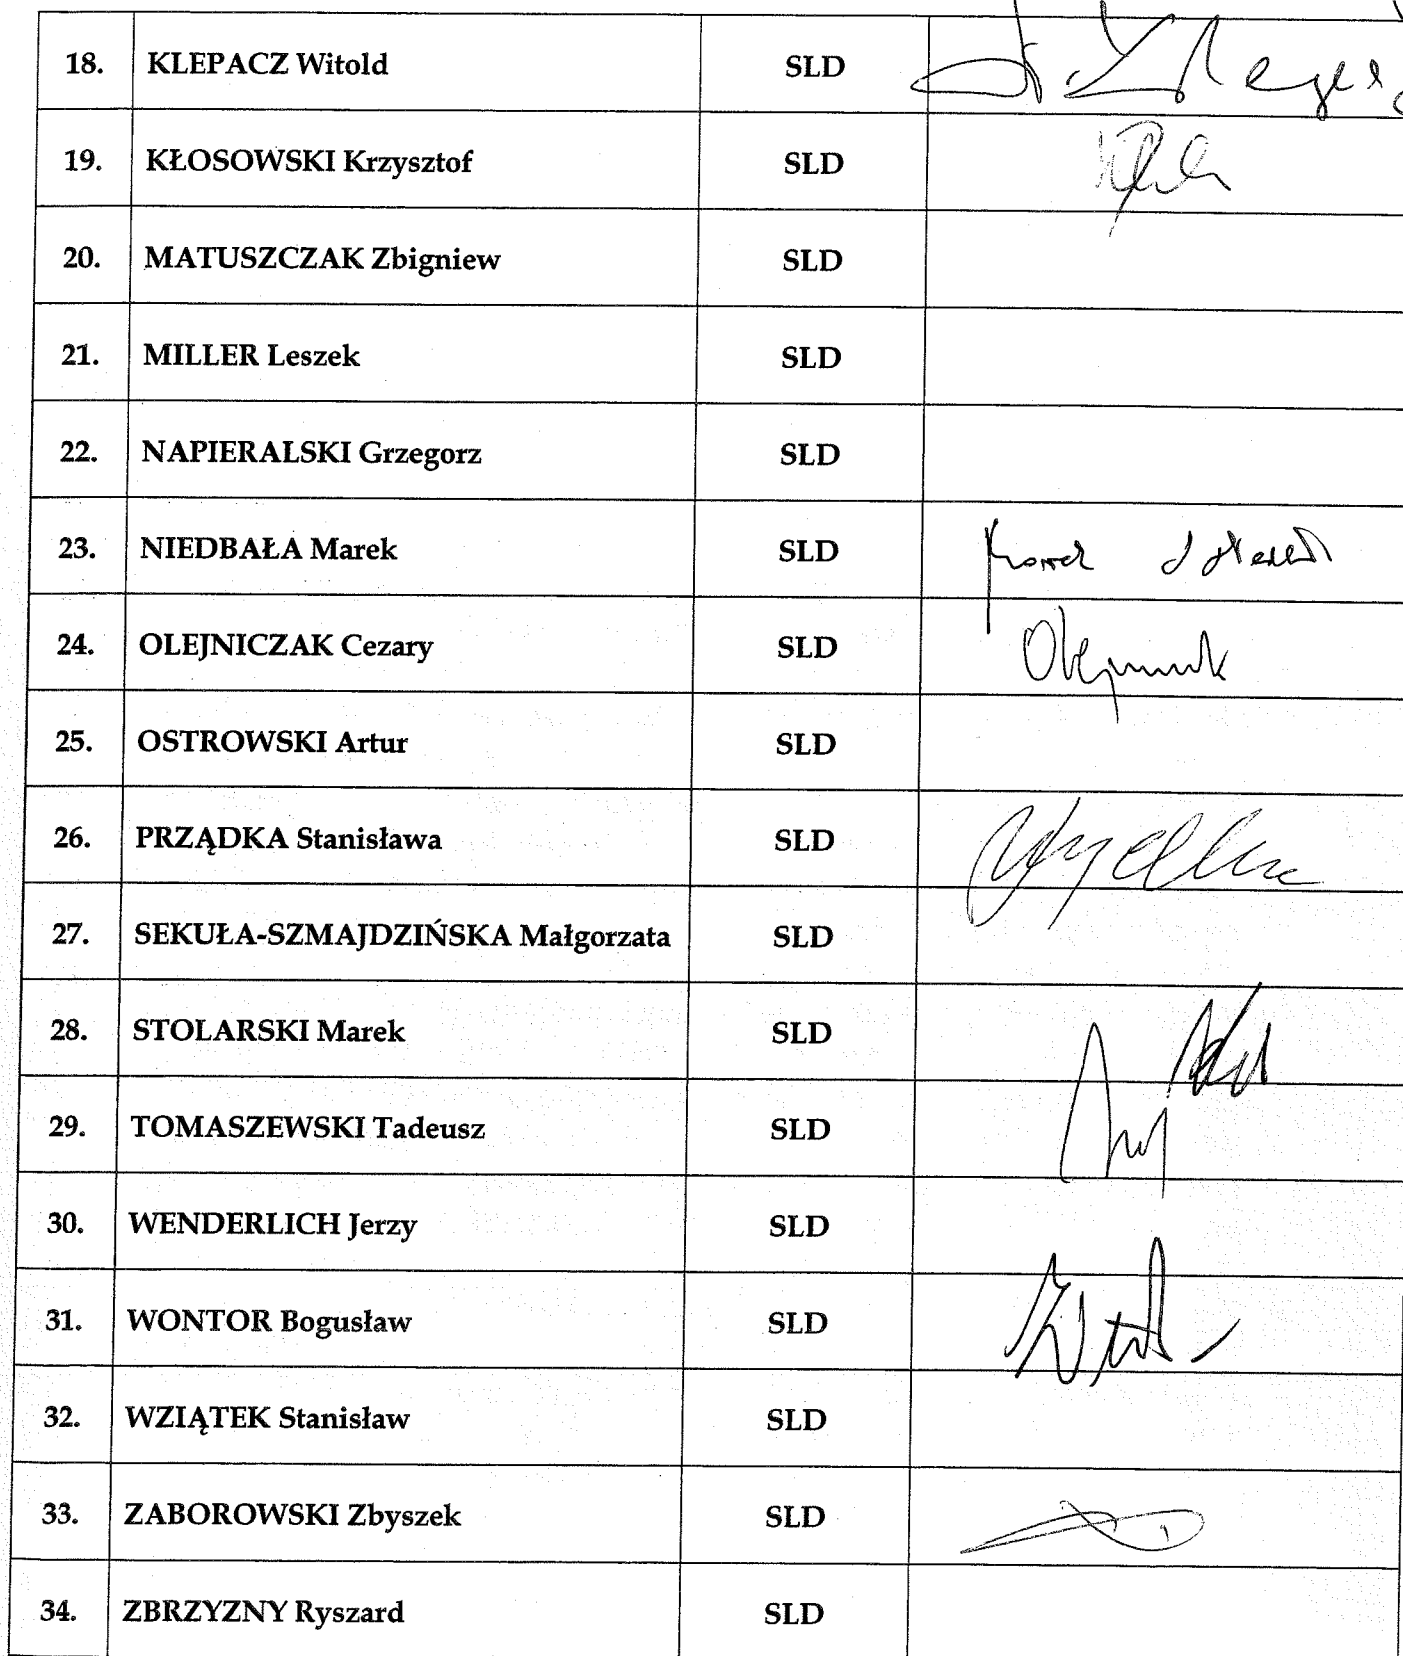 18. KLEPACZ Witold SLD
19. KŁOSOWSKI Krzysztof SLD
20. MATUSZCZAK Zbigniew SLD
21. MILLER Leszek SLD
22. NAPIERALSKI Grzegorz SLD
23. NIEDBAŁA Marek SLD
24. OLEJNICZAK Cezary SLD
25. OSTROWSKI Artur SLD
26. PRZĄDKA Stanisława SLD
27. SEKUŁA-SZMAJDZIŃSKA Małgorzata SLD
28. STOLARSKI Marek SLD
29. TOMASZEWSKI Tadeusz SLD
30. WENDERLICH Jerzy SLD
31. WONTOR Bogusław SLD
32. WZIĄTEK Stanisław SLD
33. ZABOROWSKI Zbyszek SLD
34. ZBRZYZNY Ryszard SLD